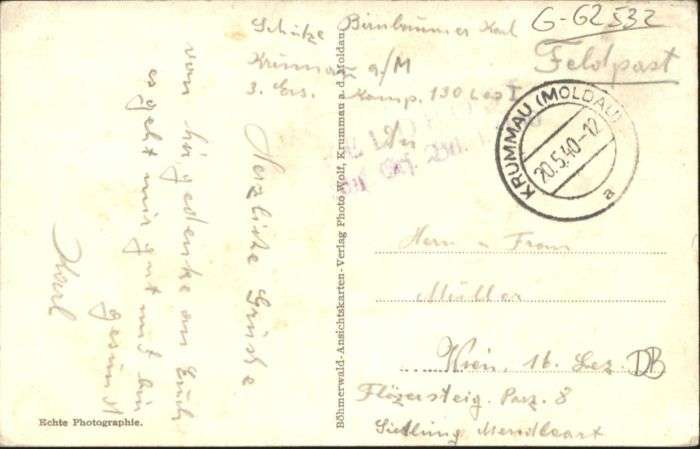 G-62532
Feldpost
Schütze Birnbaumer Karl
Krumau a/M
3. Ers. Komp. 130
KRUMMAU (MOLDAU)
20.5.40-12
a
An
Herrn u Frau
Müller
Wien, 16. Bez.
DB
Flözersteig. Parz. 8
Siedlung
Herzliche Grüße
von hir gedenke an Euch
es geht mir gut und bin
gesund
Karl
Böhmerwald-Ansichtskarten-Verlag Photo Wolf, Krummau a.d. Moldau.
Echte Photographie.